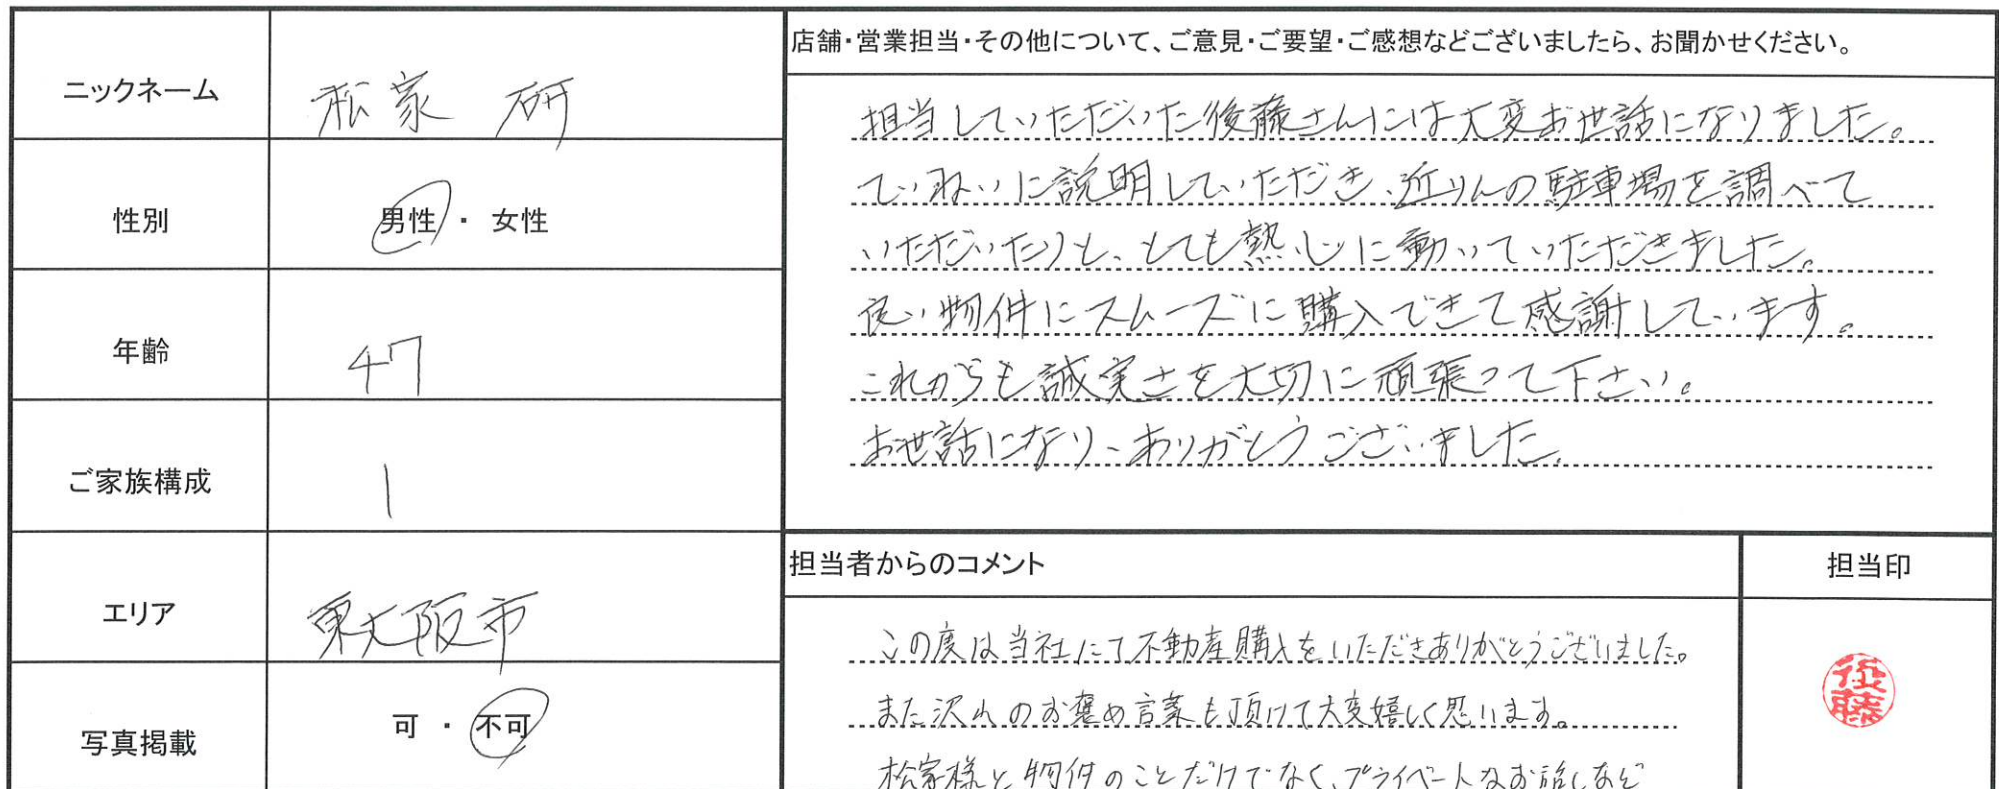 ニックネーム
松家 研
性別
男性 ・ 女性
年齢
47
ご家族構成
1
エリア
東大阪市
写真掲載
可 ・ 不可
店舗・営業担当・その他について、ご意見・ご要望・ご感想などございましたら、お聞かせください。
担当していただいた後藤さんには大変お世話になりました。
ていねいに説明していただき、近りんの駐車場を調べて
いただいたりと、とても熱心に動いていただきました。
良い物件にスムーズに購入できて感謝しています。
これからも誠実さを大切に頑張って下さい。
お世話になり、ありがとうございました。
担当者からのコメント
この度は当社にて不動産購入をいただきありがとうございました。
また沢山のお褒め言葉も頂けて大変嬉しく思います。
松家様と物件のことだけでなく、プライベートなお話しなど
担当印
後藤